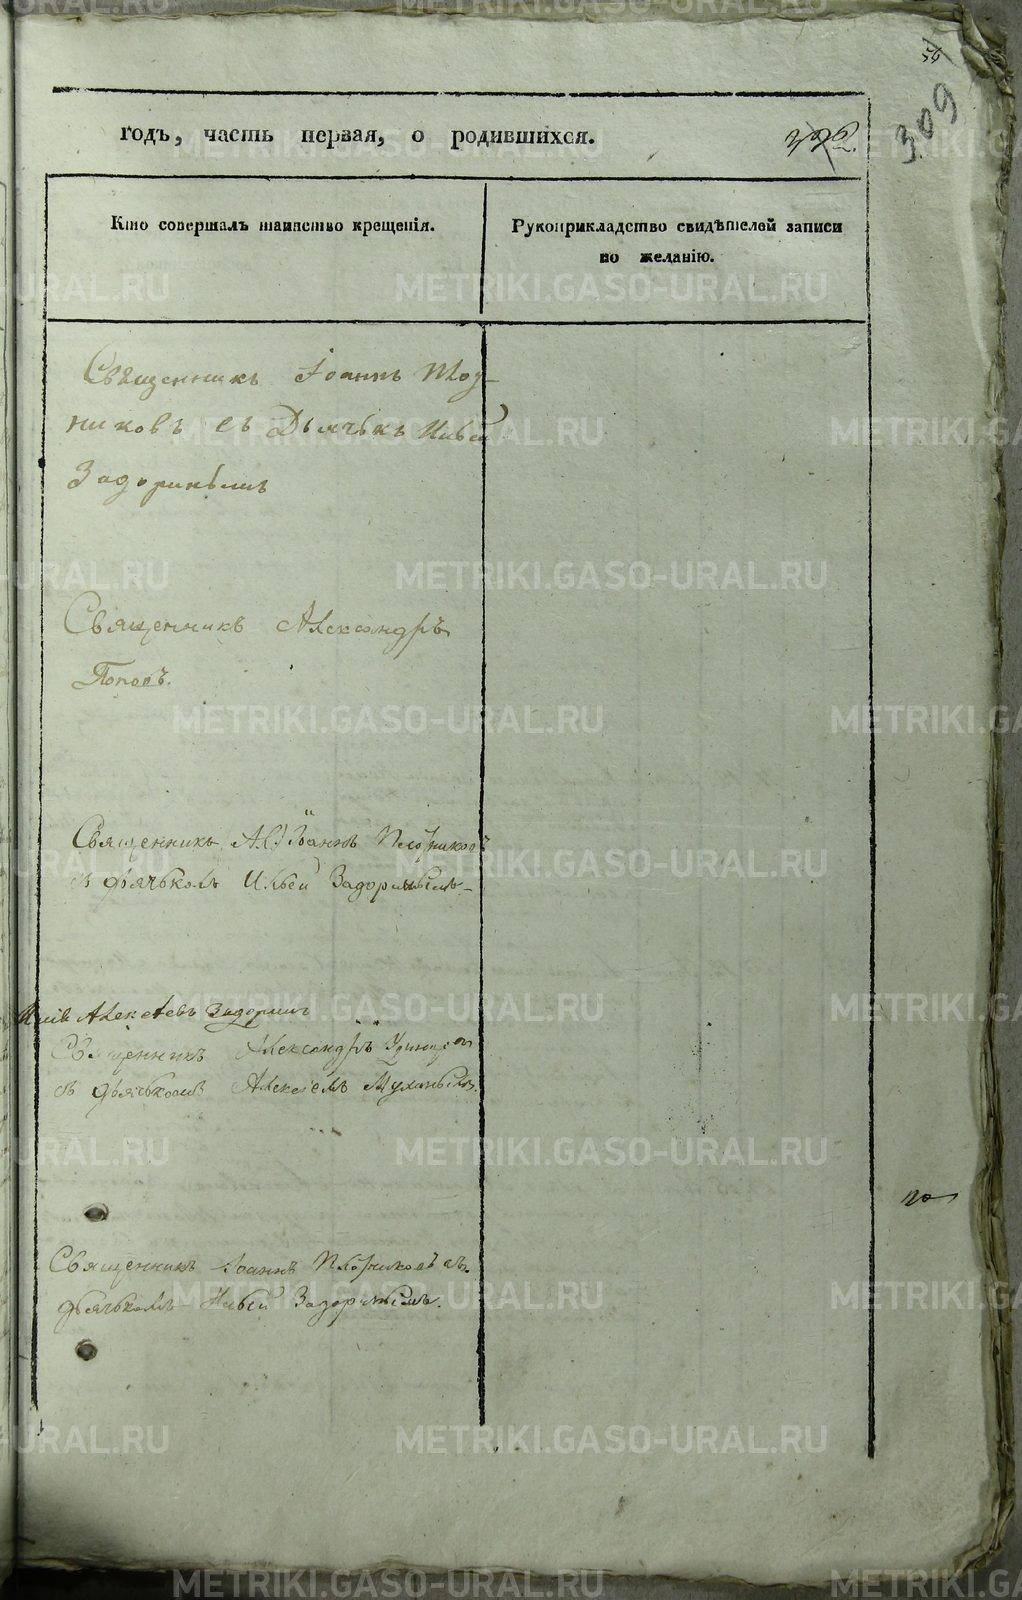 56
309
годъ, часть первая, о родившихся.
Кто совершалъ таинство крещенія.
Рукоприкладство свидѣтелей записи
по желанію.
Священникъ Іоаннъ
никовъ съ Дьячькъ Ильей
Задоринымъ
Священникъ Александръ
Поповъ.
Священникъ Іоаннъ Плотниковъ
съ дьячькомъ Ильей Задоринымъ
Алексѣевъ Задоринъ
Священникъ Александръ
съ дьячькомъ Алексіемъ
Священникъ Іоаннъ Плотниковъ съ
дьячькомъ Ильей Задоринымъ.
METRIKI.GASO-URAL.RU